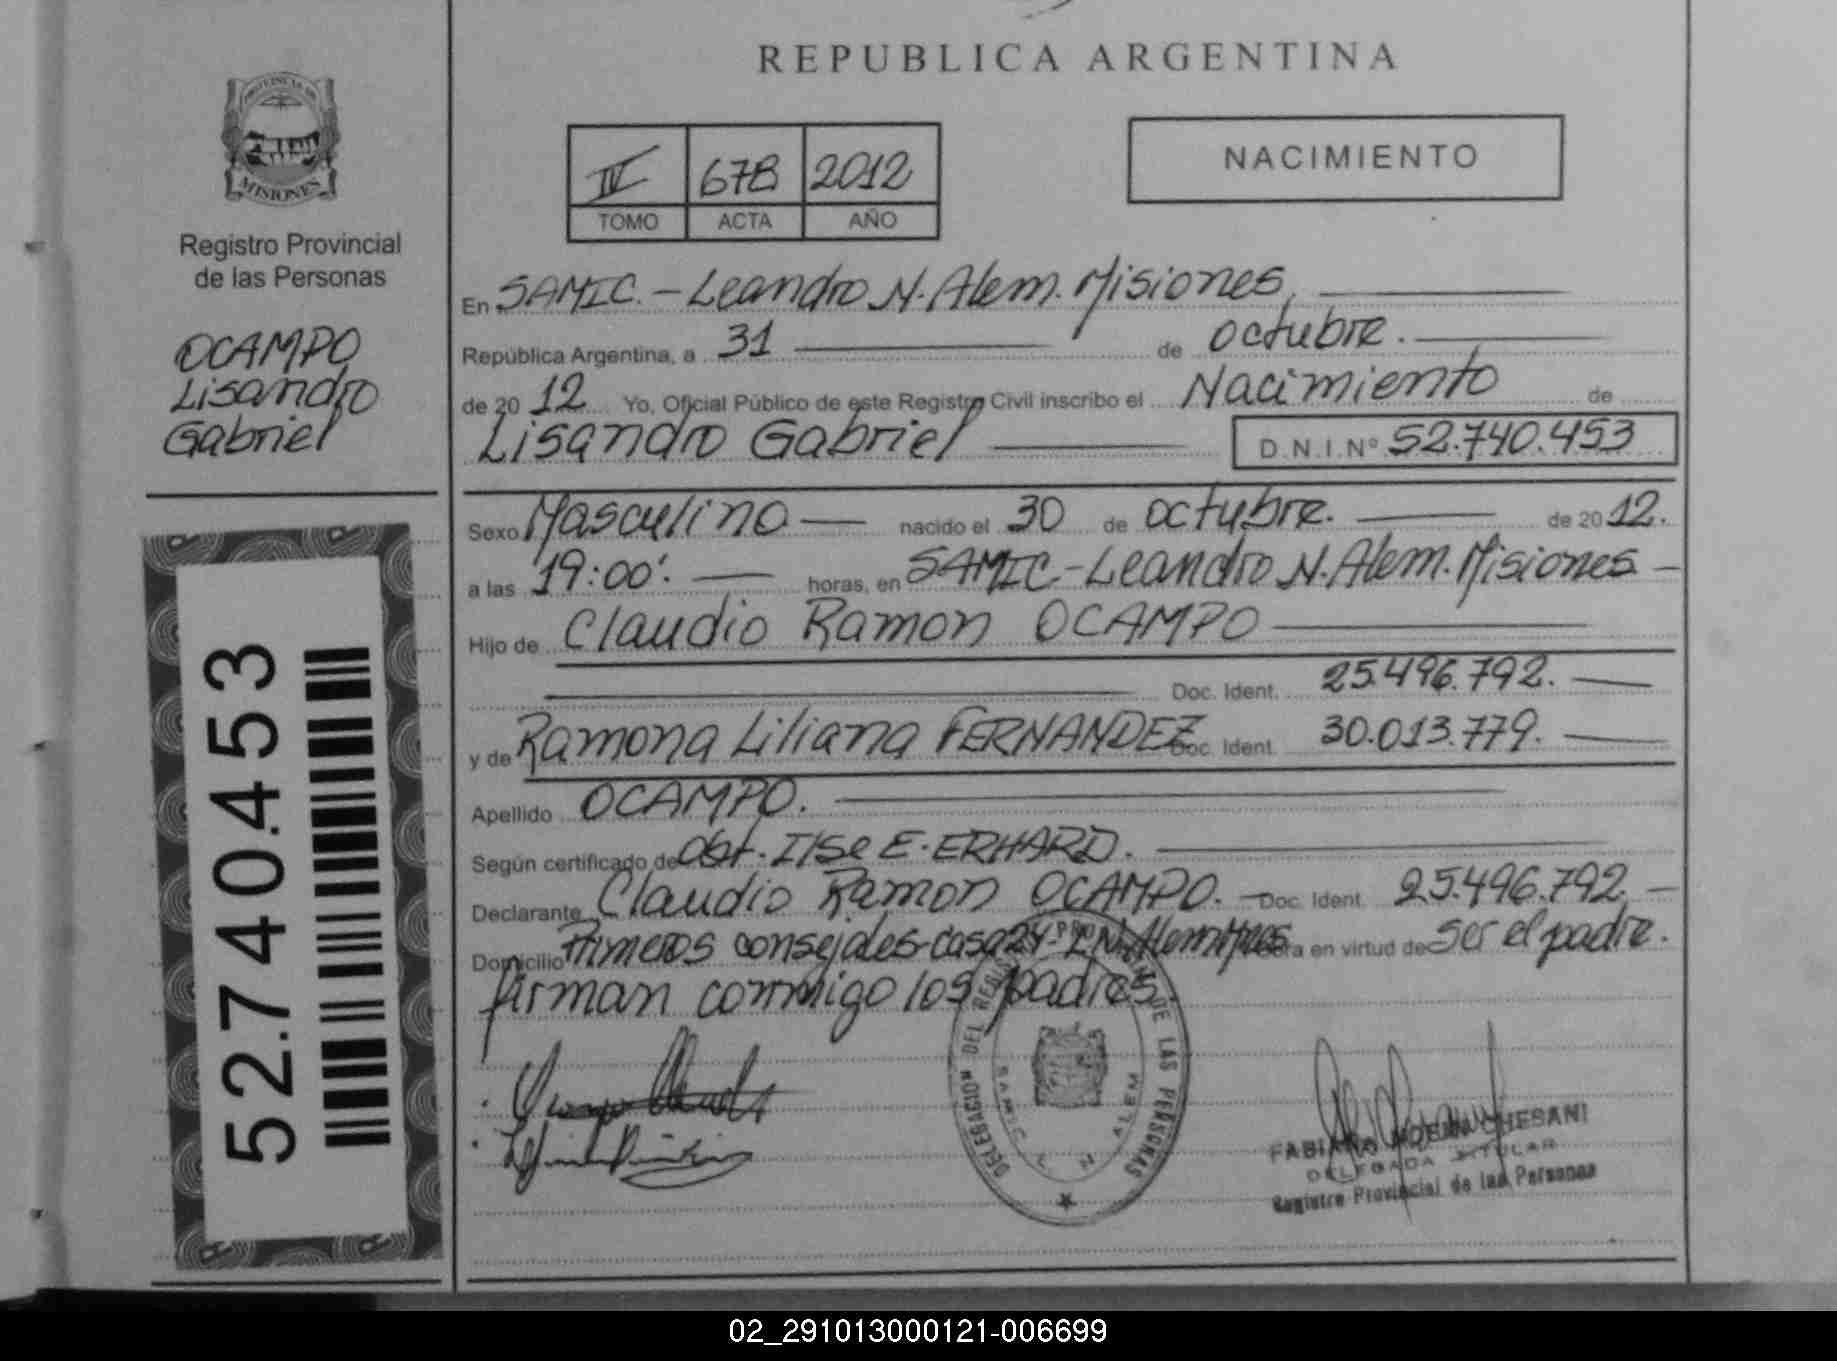 REPUBLICA ARGENTINA
PROVINCIA DE
MISIONES
Registro Provincial
de las Personas
OCAMPO
Lisandro
Gabriel
52.740.453
IV 678 2012
TOMO ACTA AÑO
NACIMIENTO
En SAMIC. - Leandro N. Alem. Misiones,
República Argentina, a 31 de octubre.
de 20 12 Yo, Oficial Público de este Registro Civil inscribo el Nacimiento de
Lisandro Gabriel D.N.I.Nº 52.740.453
Sexo Masculino nacido el 30 de octubre. de 20 12.
a las 19:00'. horas, en SAMIC - Leandro N. Alem. Misiones
Hijo de Claudio Ramon OCAMPO
Doc. Ident. 25.496.792.
y de Ramona Liliana FERNANDEZ Doc. Ident. 30.013.779.
Apellido OCAMPO.
Según certificado de obst. Ilse E. ERHARD.
Declarante Claudio Ramon OCAMPO. Doc. Ident. 25.496.792
Domicilio Primeros consejales - casa 24 - L.N. Alem en virtud de ser el padre.
firman conmigo los padres.
DELEGACION DEL DE LAS PERSONAS
SAMIC L. N. ALEM
CHESANI
DELEGADA TITULAR
Registro Provincial de las Personas
02_291013000121-006699